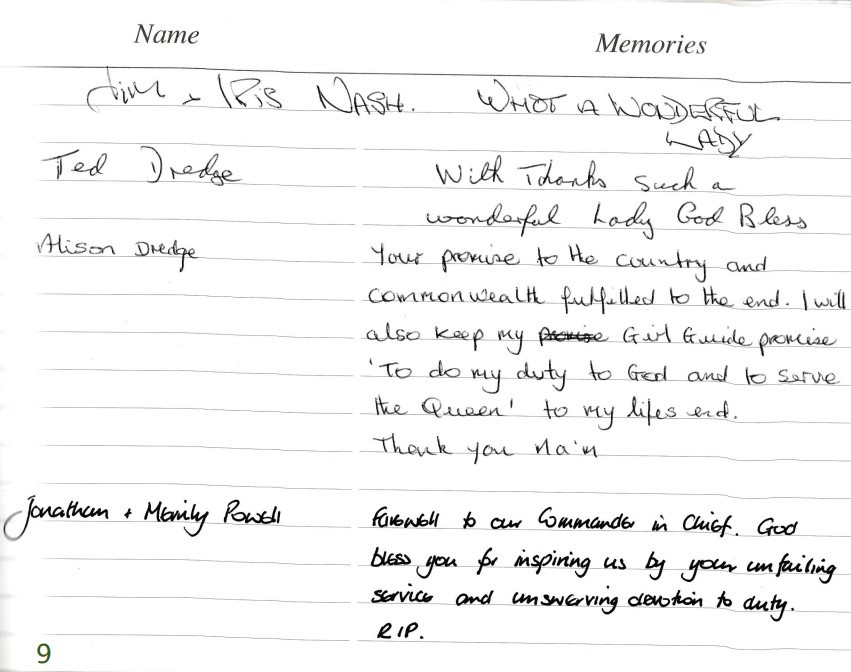 Name Memories
Jim + IRiS NASH. WHAT A WONDERFUL
LADY
Ted Dredge With Thanks Such a
wonderful Lady God Bless
Alison Dredge Your promise to the country and
commonwealth fulfilled to the end. I will
also keep my promise Girl Guide promise
'To do my duty to God and to serve
the Queen' to my lifes end.
Thank you Ma'm
Jonathan + Powell Farewell to our Commander in Chief. God
bless you for inspiring us by your unfailing
service and unswerving devotion to duty.
RIP.
9